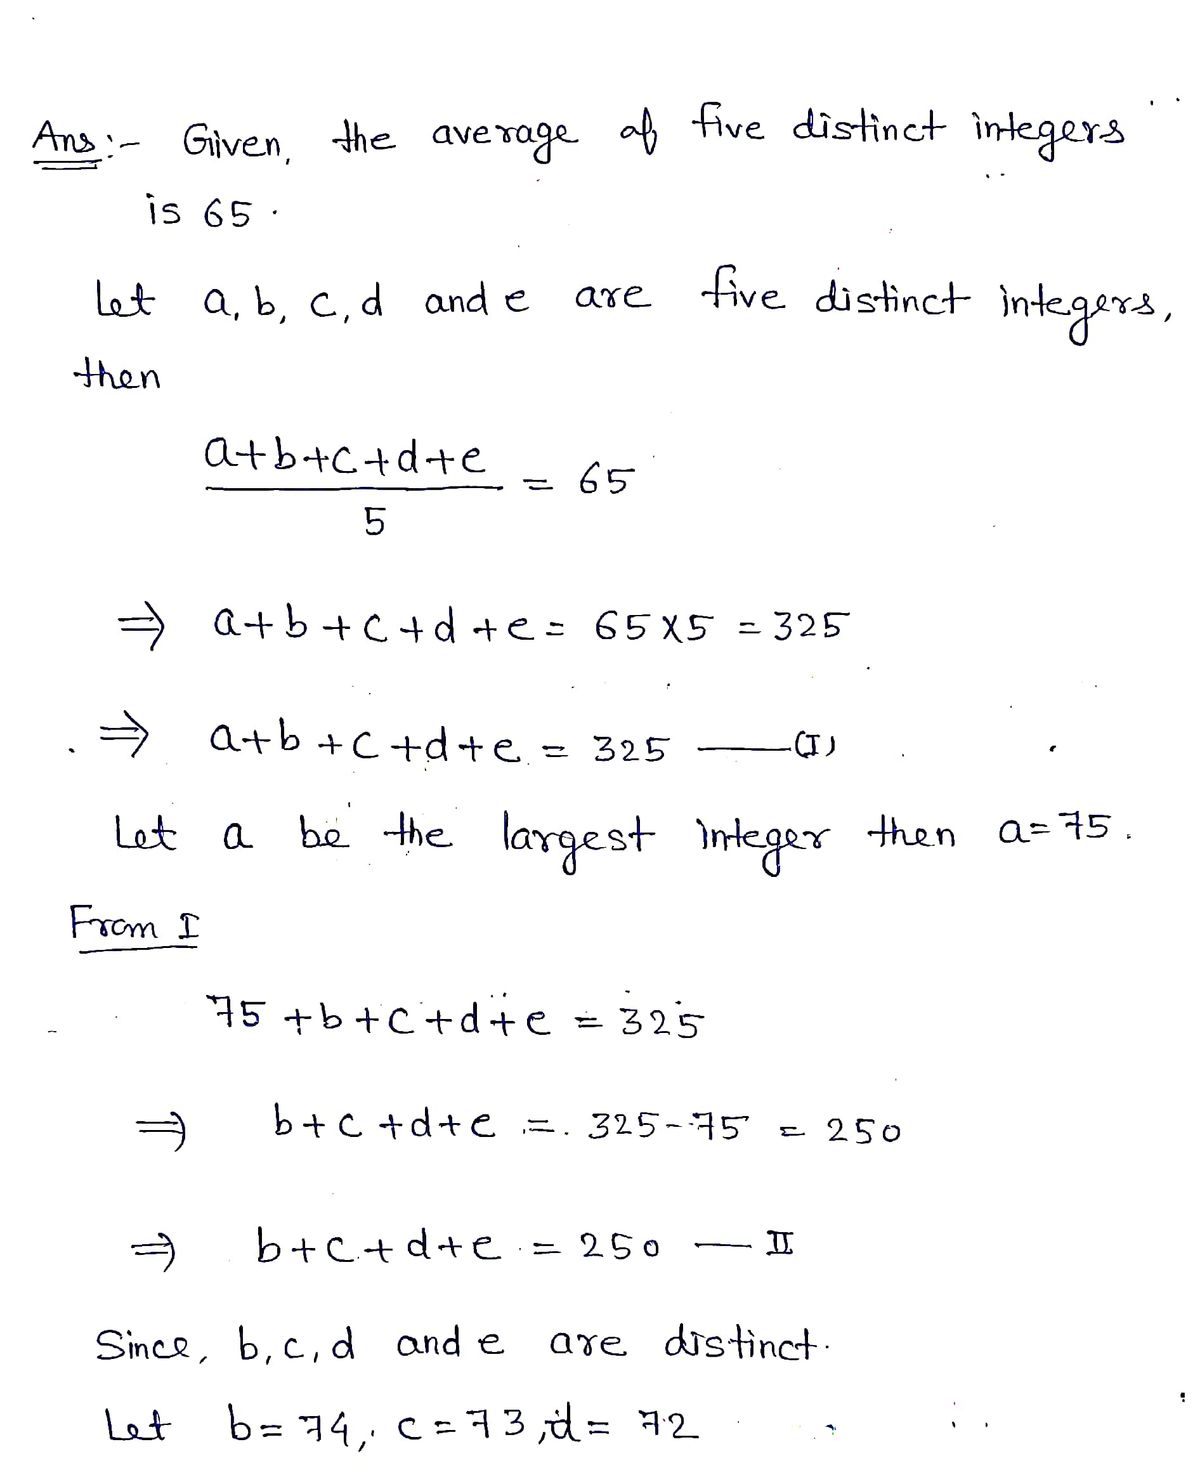 Ans:- Given, the average of five distinct integers
is 65.
Let a, b, c, d and e are five distinct integers,
then
a+b+c+d+e = 65
5
⇒ a+b+c+d+e = 65×5 = 325
⇒ a+b+c+d+e = 325 —(I)
Let a be the largest integer then a=75.
From I
75+b+c+d+e = 325
⇒ b+c+d+e = 325-75 = 250
⇒ b+c+d+e = 250 — II
Since, b, c, d and e are distinct.
Let b=74, c=73, d=72